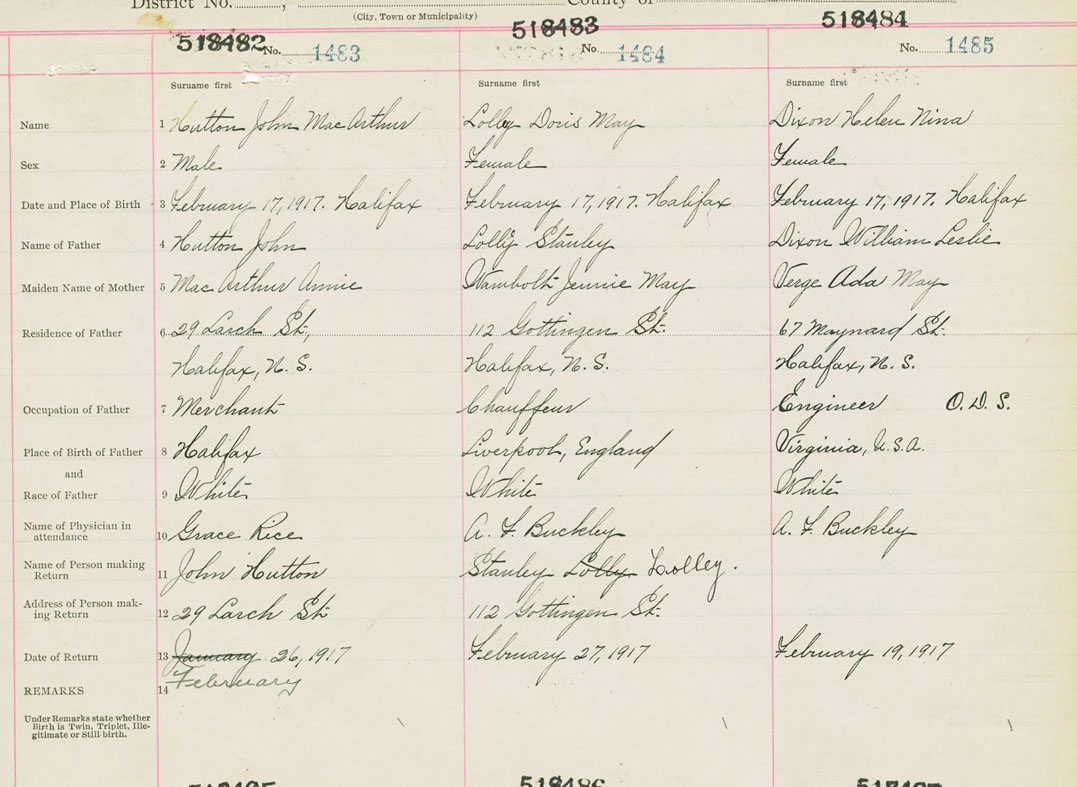 District No. , County of
(City, Town or Municipality)
518482 518483 518484
No. 1483 No. 1484 No. 1485
Surname first Surname first Surname first
Name 1 Hutton John MacArthur Lolly Doris May Dixon Helen Nina
Sex 2 Male Female Female
Date and Place of Birth 3 February 17, 1917. Halifax February 17, 1917. Halifax February 17, 1917. Halifax
Name of Father 4 Hutton John Lolly Stanley Dixon William Leslie
Maiden Name of Mother 5 MacArthur Annie Wambolt Jennie May Verge Ada May
Residence of Father 6 29 Larch St., 112 Gottingen St. 67 Maynard St.
Halifax, N. S. Halifax, N. S. Halifax, N. S.
Occupation of Father 7 Merchant Chauffeur Engineer O. D. S.
Place of Birth of Father 8 Halifax Liverpool, England Virginia, U.S.A.
and
Race of Father 9 White White White
Name of Physician in
attendance 10 Grace Rice A. F. Buckley A. F. Buckley
Name of Person making
Return 11 John Hutton Stanley Lolly Lolley.
Address of Person mak-
ing Return 12 29 Larch St 112 Gottingen St.
Date of Return 13 January 26, 1917 February 27, 1917 February 19, 1917
February
REMARKS 14
Under Remarks state whether
Birth is Twin, Triplet, Ille-
gitimate or Still-birth.
518486